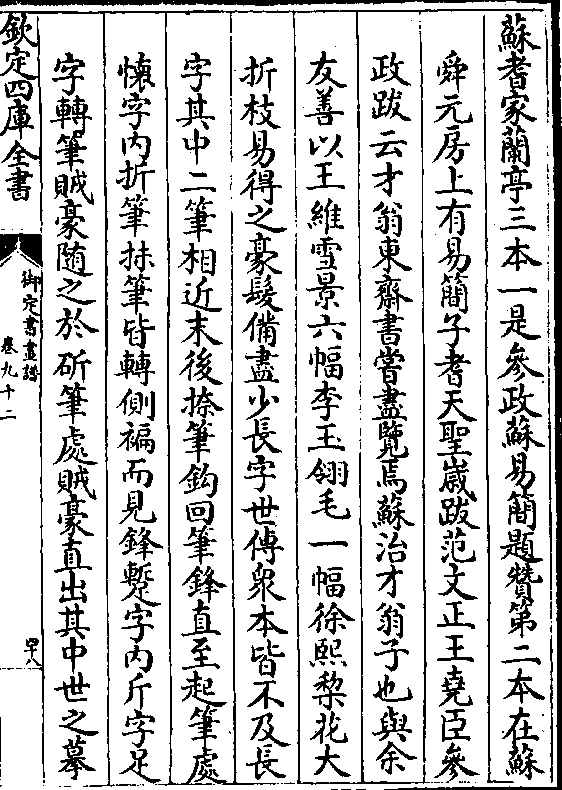 蘇耆家蘭亭三本一是參政蘇易簡題贊第二本在蘇
舜元房上有易簡子耆天聖嵗跋范文正王堯臣參
政跋云才翁東齋書嘗盡覽焉蘇治才翁子也與余
友善以王維雪景六幅李王翎毛一幅徐熙梨花大
折枝易得之毫髮備盡少長字世傳衆本皆不及長
字其中二筆相近末後捺筆鈎回筆鋒直至起筆處
懐字内折筆抹筆皆轉側褊而見鋒蹔字内斤字足
字轉筆賊毫随之於斫筆處賊毫直出其中世之摹
欽定四庫全書
御定書畫譜
卷九十二
四十八